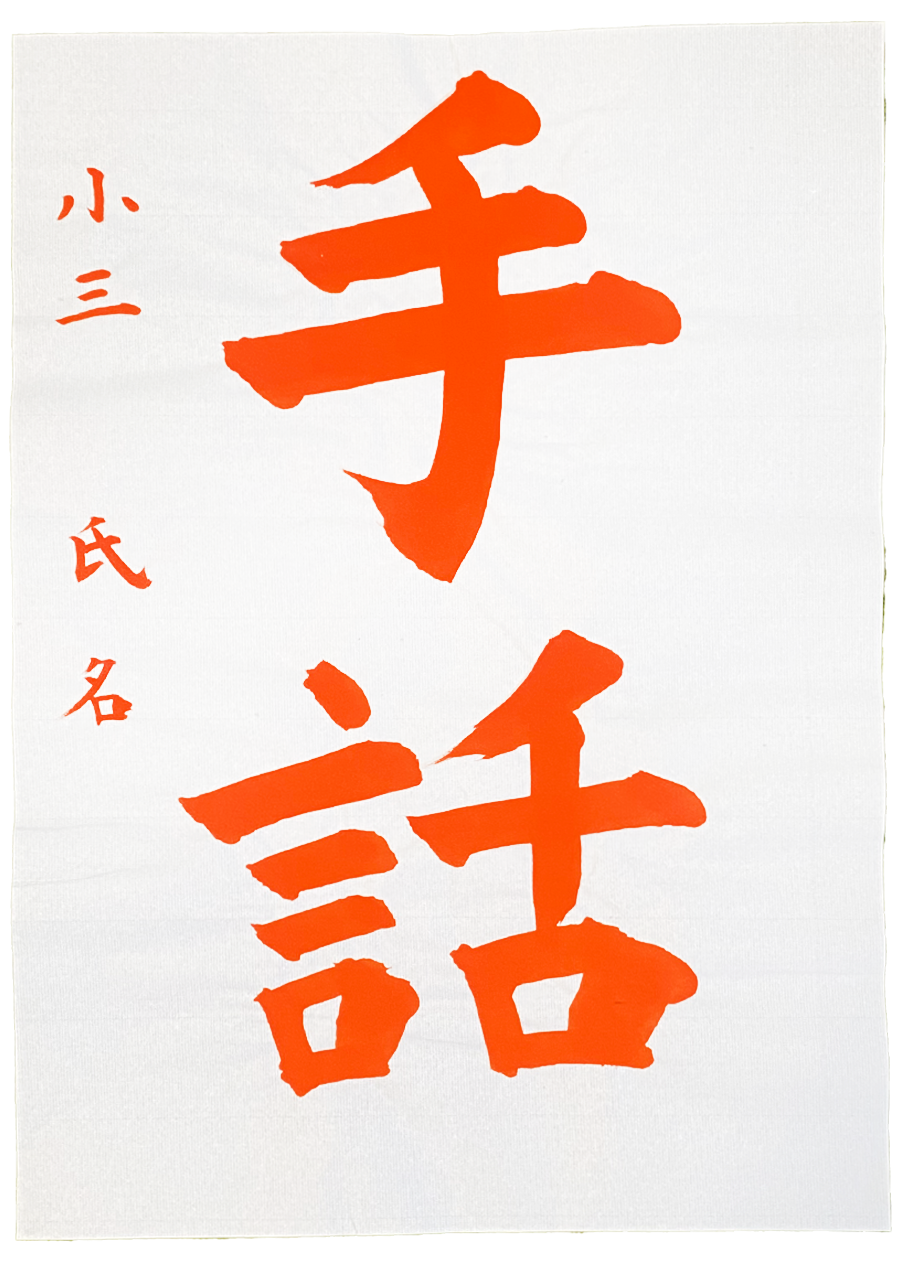 手話
小三 氏名